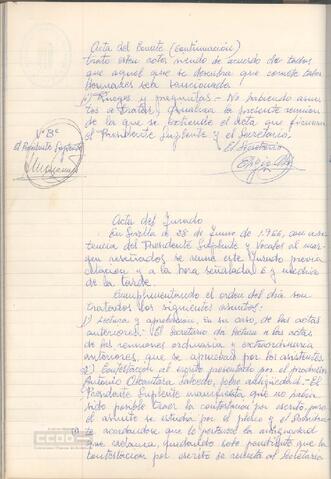 Acta del Comité (continuación)
trato estos actos siendo de acuerdo de todos
que aquel que se descubra que comete tales
sea sancionado.
j) Ruegos y preguntas.- No habiendo asun-
tos que tratar, finaliza la presente reunión
de la que se extiende el acta que firman
el Presidente Suplente y el Secretario.
VºBº
El Presidente Suplente
El Secretario
Acta del Jurado
En Sevilla a 28 de Junio de 1.966, con asis-
tencia del Presidente Suplente y Vocales al mar-
gen reseñados se reune este Jurado previa
citacion y a la hora señalada 6 y media de
de la tarde.
Cumplimentando el orden del dia son
tratados los siguientes asuntos:
1) Lectura y aprobacion, en su caso, de las actas
anteriores.- El Secretario da lectura a las actas
de las reuniones ordinaria y extraordinaria
anteriores, que se aprueban por los asistentes.
2) Contestacion al escrito presentado por el productor
Antonio Alcantara Salcedo, sobre antigüedad.- El
Presidente Suplente manifiesta que no habia
sido posible traer la contestacion por escrito, pero
el asunto se estudia por el
acordandose que le pertenece la antigüedad
que reclama, quedando solo pendiente que la
contestacion por escrito se remita al Secretario
CCOO